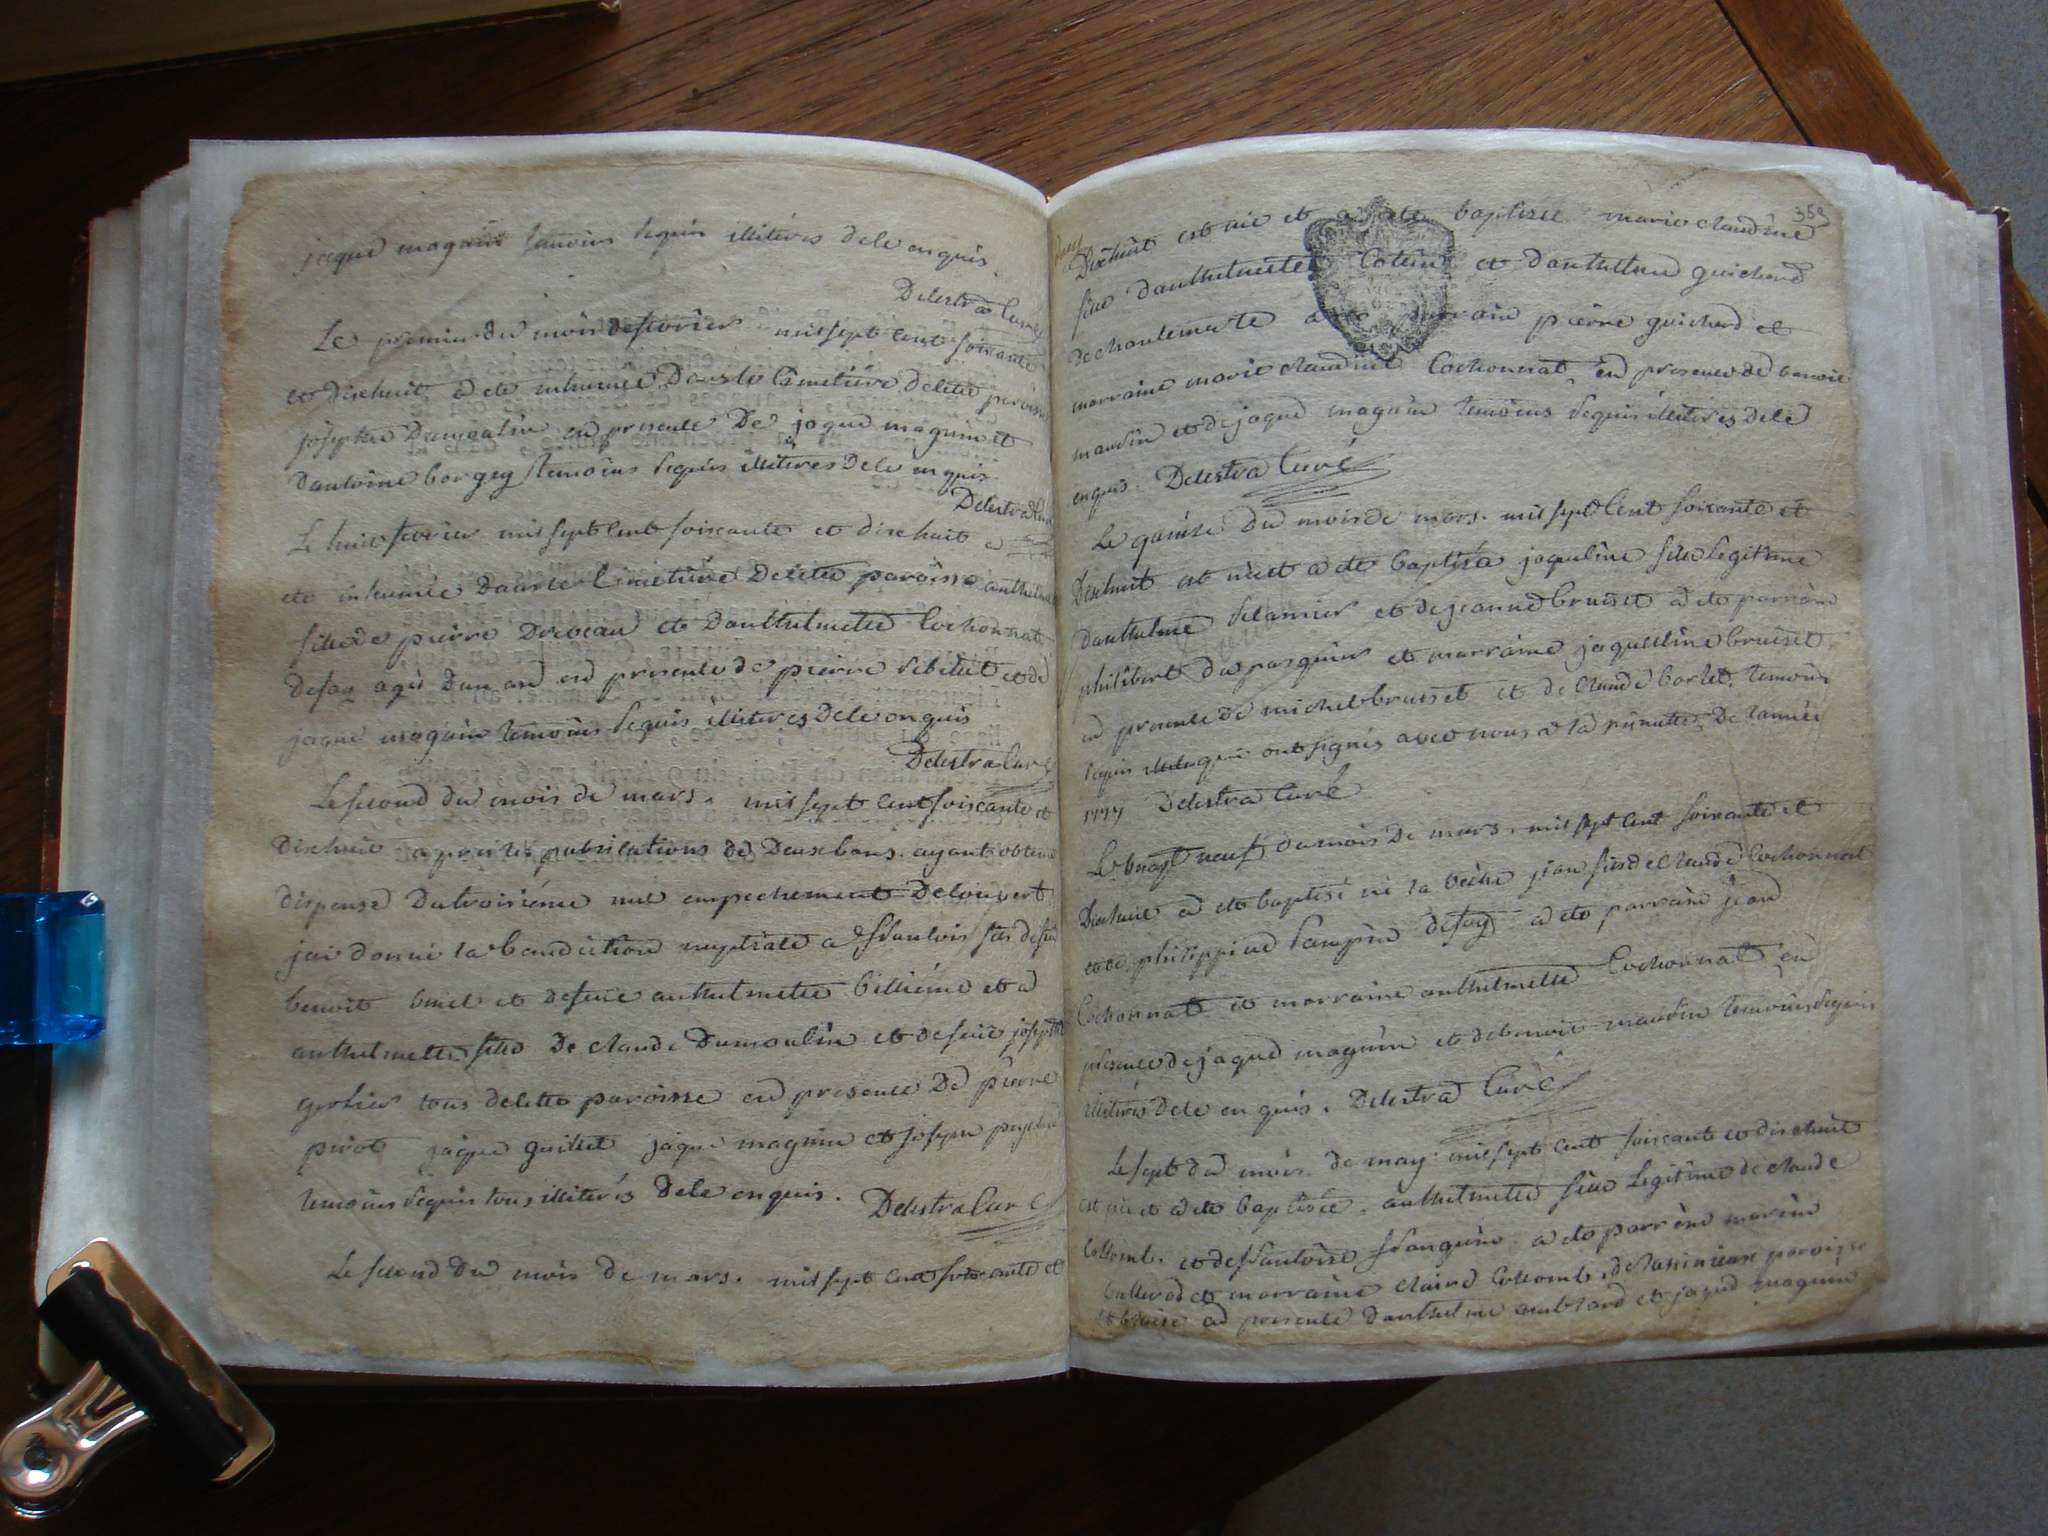 jaque magnin temoins requis illiterés de ce enquis.
Delestra Curé
Le premier du mois de fevrier mil sept cent soixante
et dixhuit a ete inhumée dans le cimetiere de cette paroisse
josephte Dumoulin en presence De jaque magnin et
dantoine borgey temoins requis illiteres de ce enquis.
Delestra Curé
Le huit fevrier mil sept cent soixante et dixhuit a
ete inhumée dans le Cimetiere de cette paroisse anthelmette
fille de pierre Deveau et danthelmette Cochonnat
defay agée dun an en presence de pierre sibelut et de
jaque magnin temoins requis illiteres de ce enquis
Delestra Curé
Le second du mois de mars. mil sept cent soixante et
dixhuit apres les publications de Deux bans ayant obtenu
dispense du troisiéme nul empechement decouvert
jai donné la benediction nuptiale a francois fils de feu
benoit binet et defeue anthelmette billiéme et a
anthelmette fille De claude Dumoulin et defeue josephte
grolier tous de cette paroisse en presence De pierre
pirot jaque guillet jaque magnin et joseph
temoins requis tous illiterés de ce enquis. Delestra Curé
Le second du mois de mars. mil sept cent soixante et
359
Dixhuit est née et a ete baptisée marie claudine
fille danthelmette et danthelme guichard
de chantemerle a ete parrain pierre guichard et
marraine marie claudine Cochonnat en presence de benoit
maudin et de jaque magnin temoins requis illiteres de ce
enquis. Delestra Curé
Le quinze du mois de mars. mil sept Cent soixante et
Dixhuit est née et a ete baptisa jaqueline fille legitime
danthelme et de jeanne bruiset a ete parrain
philibert du pasquier et marraine jaqueline bruiset
en presence de michel bruiset et de claude borlet. temoins
requis qui ont signés avec nous a la minutte. De lannée
1777 Delestra Curé
Le vingt neuf du mois De mars. mil sept cent soixante et
Dixhuit a ete baptisé né la veille jean fils de claude Cochonnat
et de philippine defay a ete parrain jean
Cochonnat et marraine anthelmette Cochonnat en
presence de jaque magnin et de benoit maudin temoins requis
illiterés de ce enquis. Delestra Curé
Le sept du mois de may mil sept cent soixante et dixhuit
est née et a ete baptisée. anthelmette fille legitime de claude
Collomb. et de francoise a ete parrein
et marraine claire Collomb. de paroisse
en presence danthelme et jaque magnin